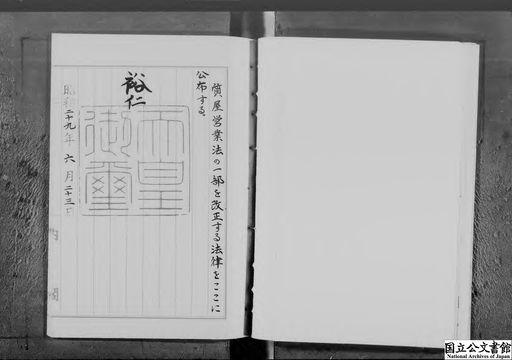 質屋営業法の一部を改正する法律をここに
公布する
裕仁
天皇
御璽
昭和二十九年六月二十三日
内閣
国立公文書館
National Archives of Japan